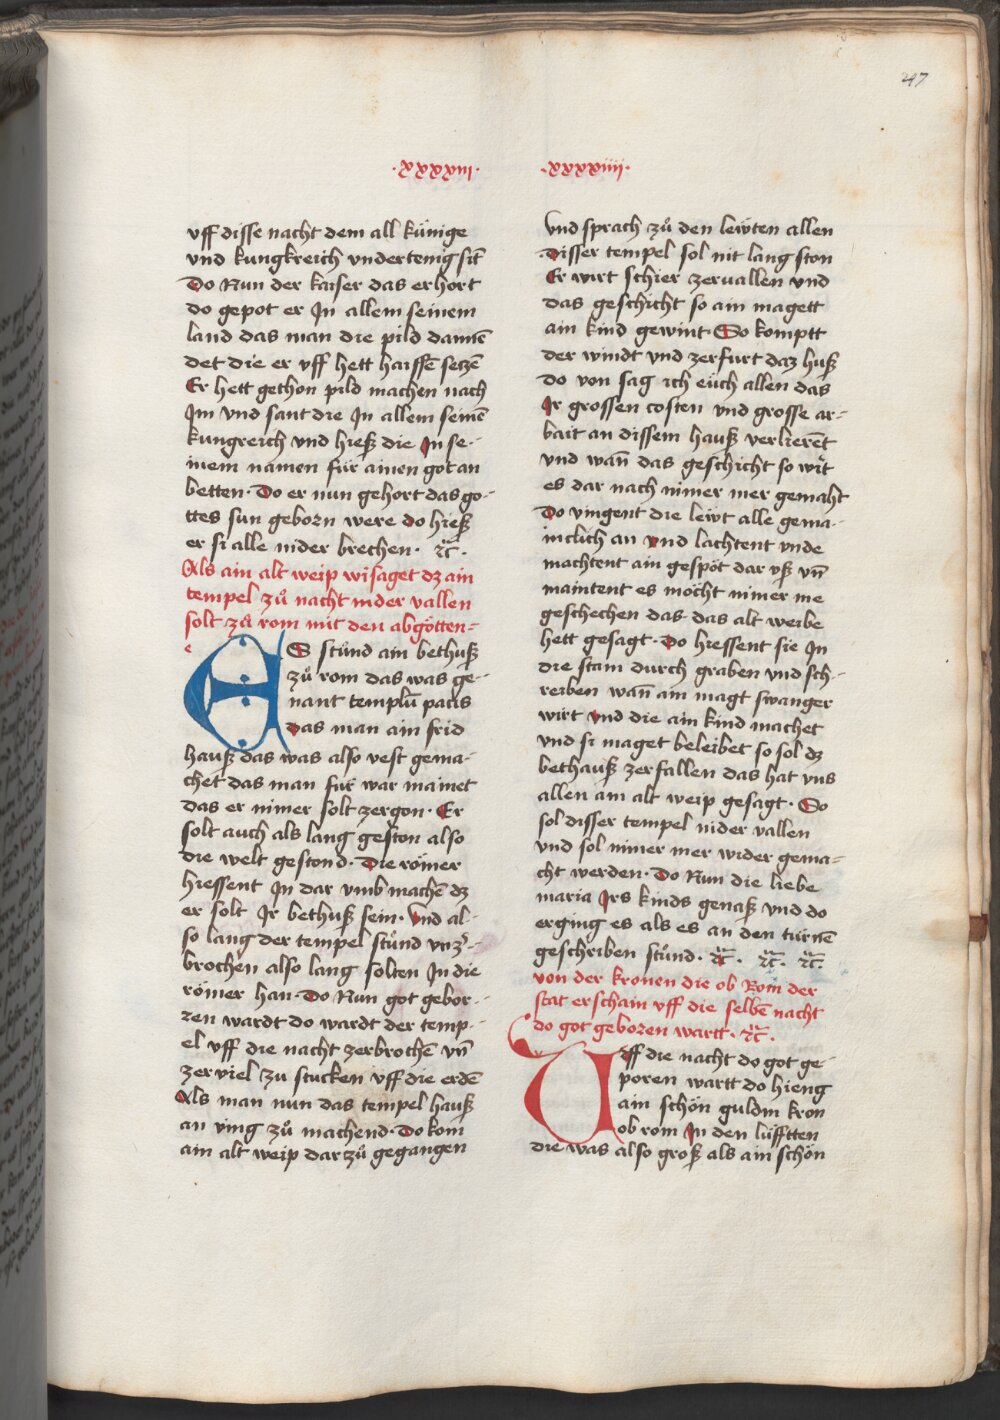 247
·xxxxiii·
vff disse nacht dem all künige
vnd kungkreich vndertenig sit̄
Do Nun der kaiser das erhort
do gepot er Jn allem seinem
land das man die pild dannē
det die er vff hett haissē setzē
Er hett gethon pild machen nach
Jm vnd sant die Jn allem seinē
kungreich vnd hieß die Jn se-
inem namen für ainen got an
betten· Do er nun gehort das go-
ttes sun geborn were do hieß
er si alle nider brechen· ꝛc̄·
Als ain alt weip wisaget dz ain
tempel zů nacht nider vallen
solt zů rom mit den abgötten=
e
ES stůnd ain bethuß
zů rom das was ge-
nant templū pacis
das man ain frid
hauß das was also vest gema-
chet das man für war mainet
das er nimer solt zergon· Er
solt auch als lang geston also
die welt gestond· Die römer
hiessent Jn dar vmb machē dz
er solt Jr bethuß sein· Vnd al-
so lang der tempel stůnd vnz̄-
brochen also lang solten Jn die
römer han· Do Nun got gebor-
ren wardt do wardt der temp-
el vff die nacht zerbrochē vn̄
zerviel zu stucken vff die erdē
Als man nun das tempel hauß
an ving zů machend· Do kom
ain alt weip dar zů gegangen
·xxxxiiii·
Vnd sprach zů den lewten allen
Disser tempel sol nit lang ston
Er wirt schier zervallen vnd
das geschicht so ain magett
ain kind gewint· So komptt
der windt vnd zerfurt daz huß
do von sag ich eüch allen das
Jr grossen costen vnd grosse ar-
bait an dissem hauß verlierēt
vnd wan̄ das geschicht so wirt
es dar nach nimer mer gemaht
Do vingent die lewt alle gema-
inclich an vnd lachtent vnde
machtent ain gespöt dar vß vn̄
maintent es möcht nimer me
geschechen das· das alt weibe
hett gesagt· Do hiessent sie Jn
die stain durch graben vnd sch-
reiben wan̄ ain magt swanger
wirt vnd die ain kind machet
vnd si maget beleibet so sol dz
bethauß zerfallen das hat vns
allen ain alt weip gesagt· So
sol disser tempel nider vallen
vnd sol nimer mer wider gema=
cht werden· Do Nun die liebe
maria Jrs kinds genaß vnd do
erging es als es an den türnē
geschriben stůnd· ꝛc̄· ꝛc̄· ꝛc̄·
von der kronen die ob Rom der
stat erschain vff die selbē nacht
do got geboren wartt· ꝛc̄·
Vff die nacht do got ge-
poren wartt do hieng
ain schön guldin kron
ob rom Jn den lüfftten
die was also groß als ain schön